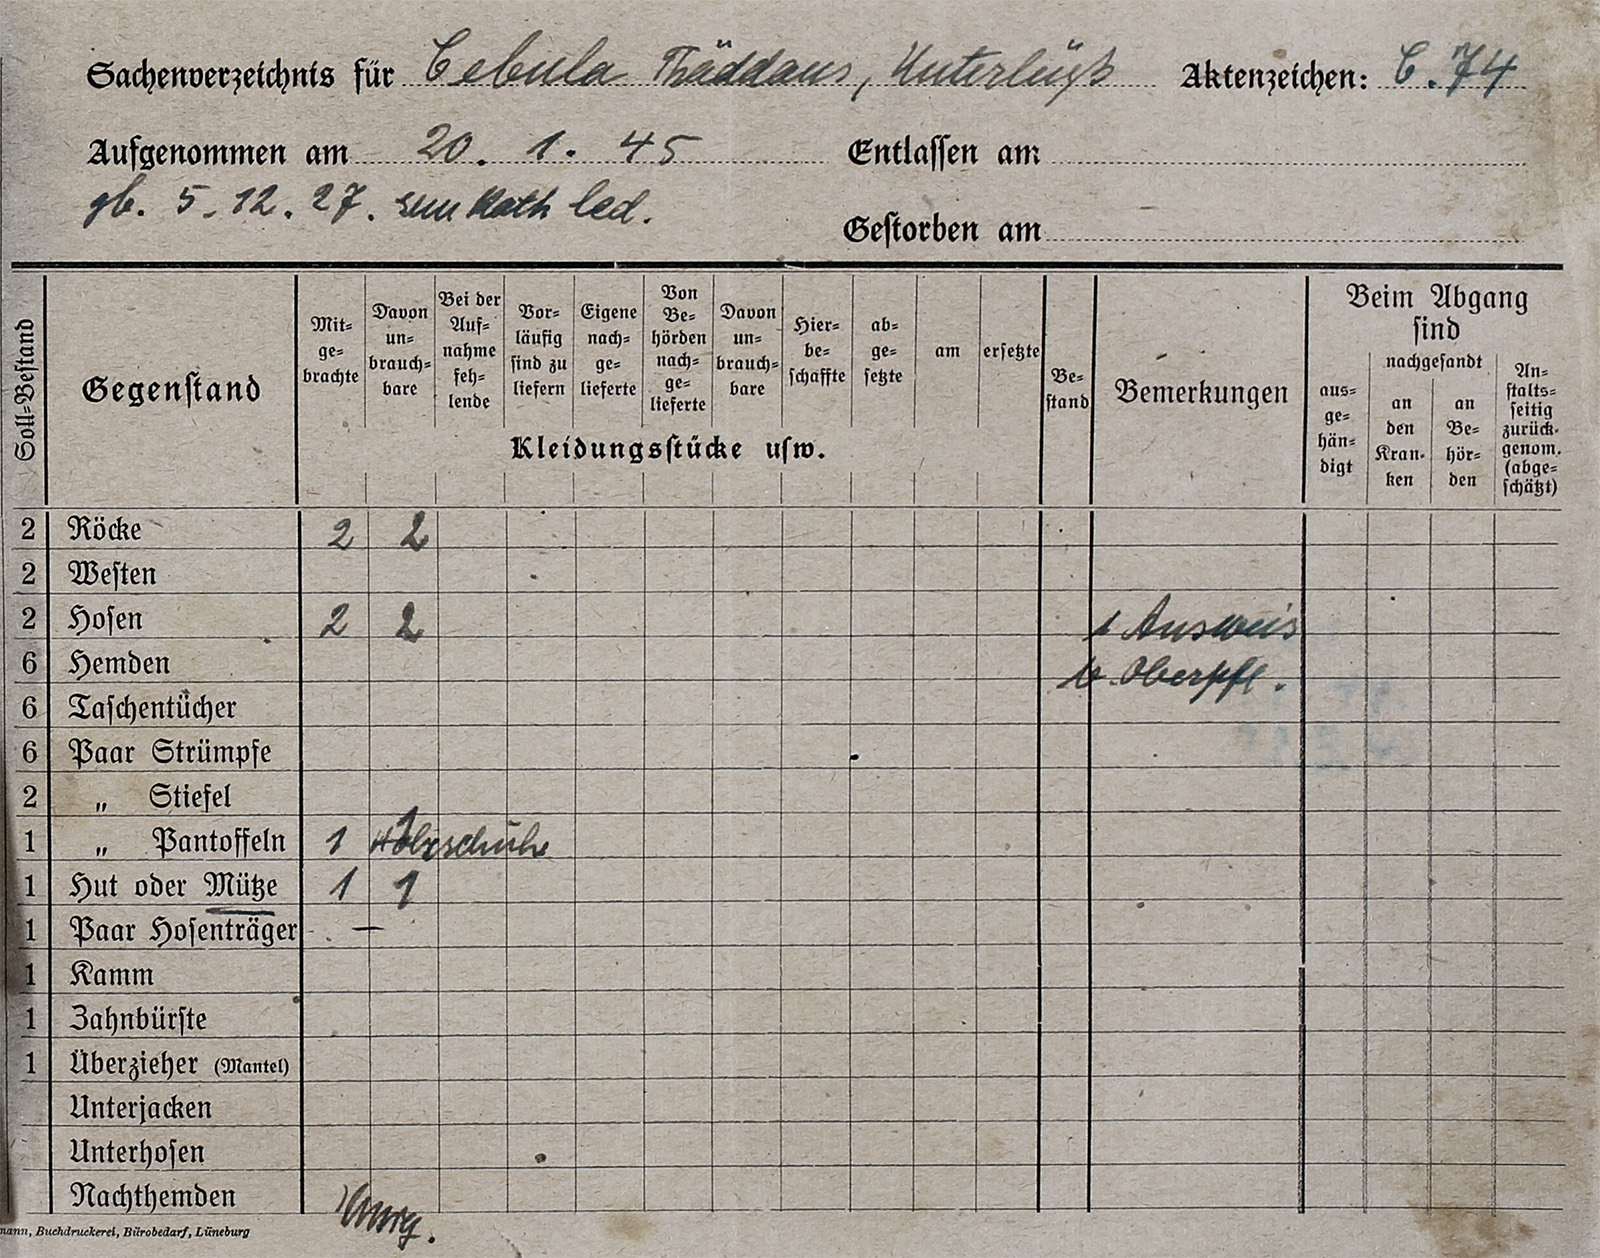 Sachenverzeichnis für Cebula Thäddäus, Unterlüß Aktenzeichen: C. 74
Aufgenommen am 20. 1. 45 Entlassen am
gb. 5. 12. 27. kath led.
Gestorben am
Soll-Bestand
Gegenstand
Mit-
ge-
brachte
Davon
un-
brauch-
bare
Bei der
Auf-
nahme
feh-
lende
Vor-
läufig
sind zu
liefern
Eigene
nach-
ge-
lieferte
Von
Be-
hörden
nach-
ge-
lieferte
Davon
un-
brauch-
bare
Hier-
be-
schaffte
ab-
ge-
setzte
am
ersetzte
Kleidungsstücke usw.
Be-
stand
Bemerkungen
Beim Abgang
sind
aus-
ge-
hän-
digt
nachgesandt
an
den
Kran-
ken
an
Be-
hör-
den
An-
stalts-
seitig
zurück-
genom.
(abge-
schätzt)
2 Röcke 2 2
2 Westen
2 Hosen 2 2 1 Ausweis
6 Hemden b. Oberpfl.
6 Taschentücher
6 Paar Strümpfe
2 „ Stiefel
1 „ Pantoffeln 1 Holzschuhe 1
1 Hut oder Mütze 1 1
1 Paar Hosenträger —
1 Kamm
1 Zahnbürste
1 Überzieher (Mantel)
Unterjacken
Unterhosen
Nachthemden
mann, Buchdruckerei, Bürobedarf, Lüneburg